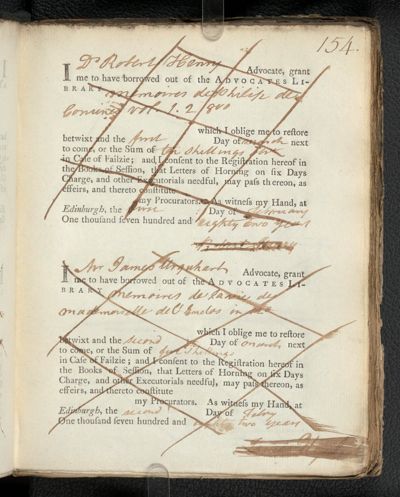 154.
I Dr Robert Henry Advocate, grant
me to have borrowed out of the ADVOCATES LI-
BRARY memoires de Philipe de
Comines vol. 1. 2 8vo
which I oblige me to reſtore
betwixt and the first Day of march next
to come, or the Sum of ten shillings
in Caſe of Failzie; and I conſent to the Regiſtration hereof in
the Books of Seſſion, that Letters of Horning on ſix Days
Charge, and other Executorials needful, may paſs thereon, as
effeirs, and thereto conſtitute
my Procurators. As witneſs my Hand, at
Edinburgh, the Day of
One thouſand ſeven hundred and eighty two years
I Mr James Urquhart Advocate, grant
me to have borrowed out of the ADVOCATES LI-
BRARY memoires de la vie de
mademoiselle de l'Enclos in
which I oblige me to reſtore
betwixt and the second Day of march, next
to come, or the Sum of Shillings
in Caſe of Failzie; and I conſent to the Regiſtration hereof in
the Books of Seſſion, that Letters of Horning on ſix Days
Charge, and other Executorials needful, may paſs thereon, as
effeirs, and thereto conſtitute
my Procurators. As witneſs my Hand, at
Edinburgh, the second Day of Febry
One thouſand ſeven hundred and eighty two years